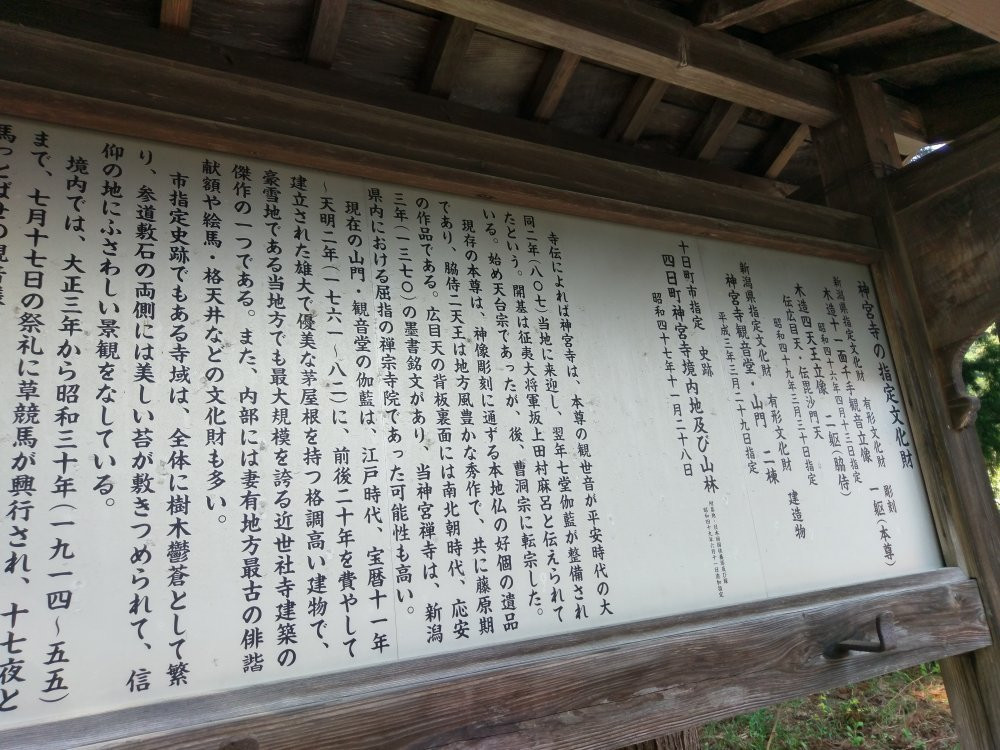 神宮寺の指定文化財
新潟県指定文化財　有形文化財　彫刻
木造十一面千手観音立像　一軀（本尊）
昭和四十六年四月十三日指定
木造四天王立像　二軀（脇侍）
伝広目天・伝毘沙門天
昭和四十九年三月三十日指定
新潟県指定文化財　有形文化財　建造物
神宮寺観音堂・山門　二棟
平成三年三月二十九日指定
十日町市指定　史跡
四日町神宮寺境内地及び山林
昭和四十七年十一月二十八日
寺伝によれば神宮寺は、本尊の観世音が平安時代の大
同二年（八〇七）当地に来迎し、翌年七堂伽藍が整備され
たという。開基は征夷大将軍坂上田村麻呂と伝えられて
いる。始め天台宗であったが、後、曹洞宗に転宗した。
現存の本尊は、神像彫刻に通ずる本地仏の好個の遺品
であり、脇侍二天王は地方風豊かな秀作で、共に藤原期
の作品である。広目天の背板裏面には南北朝時代、応安
三年（一三七〇）の墨書銘文があり、当神宮禅寺は、新潟
県内における屈指の禅宗寺院であった可能性も高い。
現在の山門・観音堂の伽藍は、江戸時代、宝暦十一年
〜天明二年（一七六一〜八二）に、前後二十年を費やして
建立された雄大で優美な茅屋根を持つ格調高い建物で、
豪雪地である当地方でも最大規模を誇る近世社寺建築の
傑作の一つである。また、内部には妻有地方最古の俳諧
献額や絵馬・格天井などの文化財も多い。
市指定史跡でもある寺域は、全体に樹木鬱蒼として繁
り、参道敷石の両側には美しい苔が敷きつめられて、信
仰の地にふさわしい景観をなしている。
境内では、大正三年から昭和三十年（一九一四〜五五）
まで、七月十七日の祭礼に草競馬が興行され、十七夜と
馬っとばせの観音様